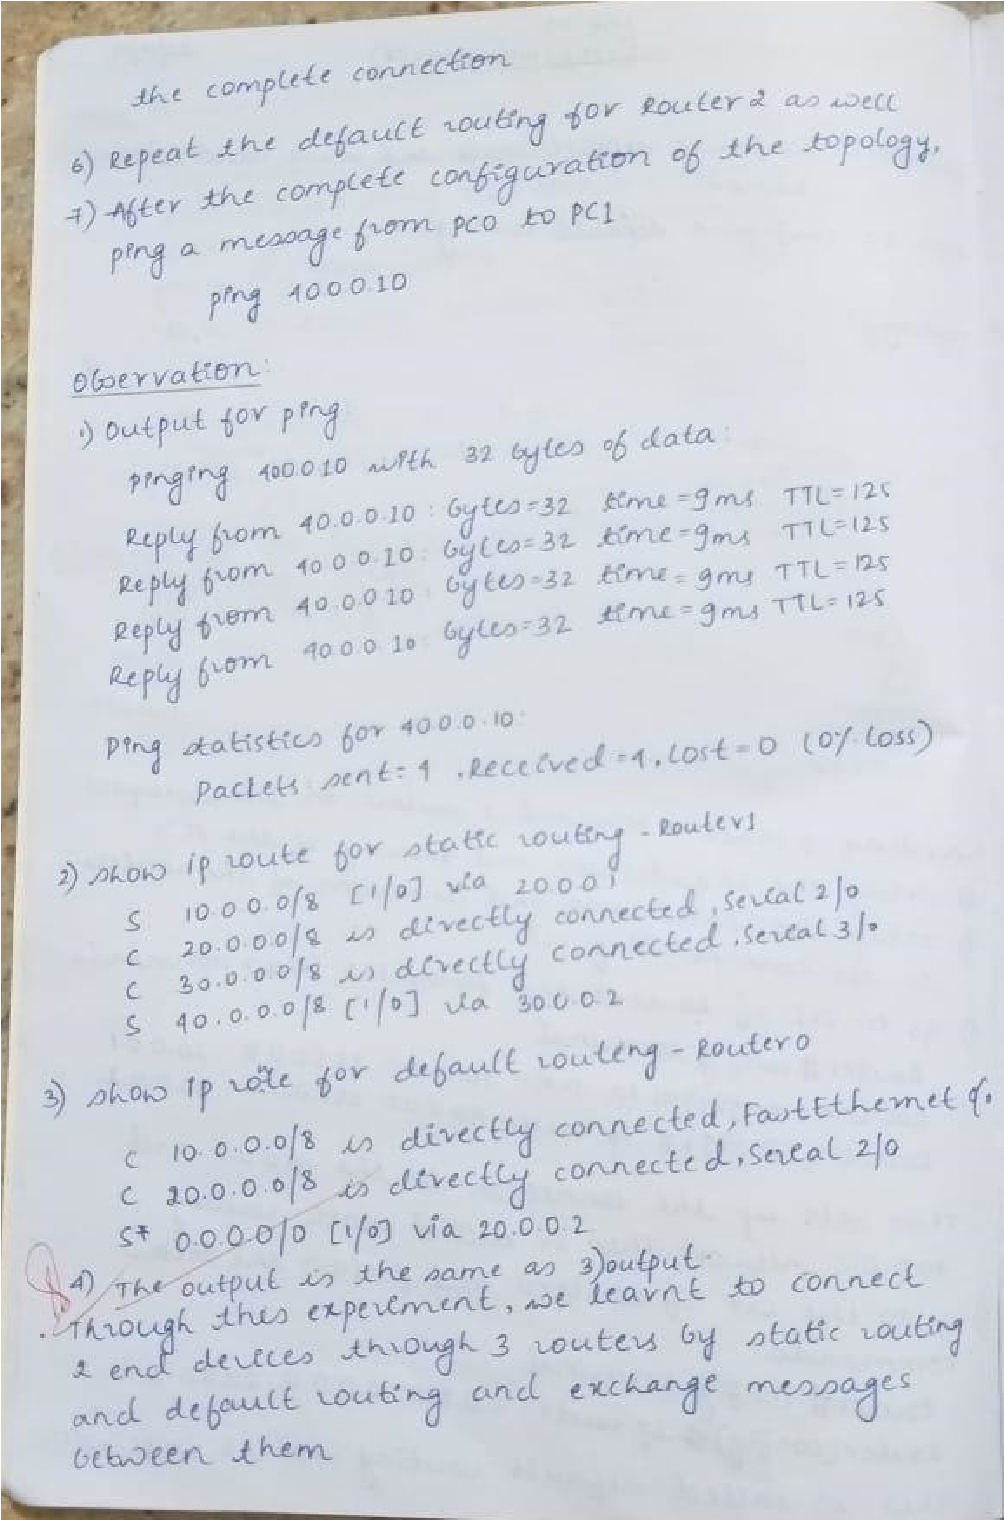 the complete connection
6) Repeat the default routing for Router 2 as well
7) After the complete configuration of the topology,
ping a message from PC0 to PC1
ping 40.0.0.10
Observation:
1) Output for ping
pinging 40.0.0.10 with 32 bytes of data:
Reply from 40.0.0.10 : bytes=32 time=9ms TTL=125
Reply from 40.0.0.10: bytes=32 time=9ms TTL=125
Reply from 40.0.0.10: bytes=32 time=9ms TTL=125
Reply from 40.0.0.10: bytes=32 time=9ms TTL=125
Ping statistics for 40.0.0.10:
Packets sent=4, Received=4, lost=0 (0% loss)
2) show ip route for static routing - Router1
S 10.0.0.0/8 [1/0] via 20.0.0.1
C 20.0.0.0/8 is directly connected, serial 2/0
C 30.0.0.0/8 is directly connected, Sereal 3/0
S 40.0.0.0/8 [1/0] via 30.0.0.2
3) show ip rote for default routing - Router0
C 10.0.0.0/8 is directly connected, FastEthernet 0/0
C 20.0.0.0/8 is directly connected, Sereal 2/0
S* 0.0.0.0/0 [1/0] via 20.0.0.2
4) The output is the same as 3) output.
. Through this experiment, we learnt to connect
2 end devices through 3 routers by static routing
and default routing and exchange messages
between them